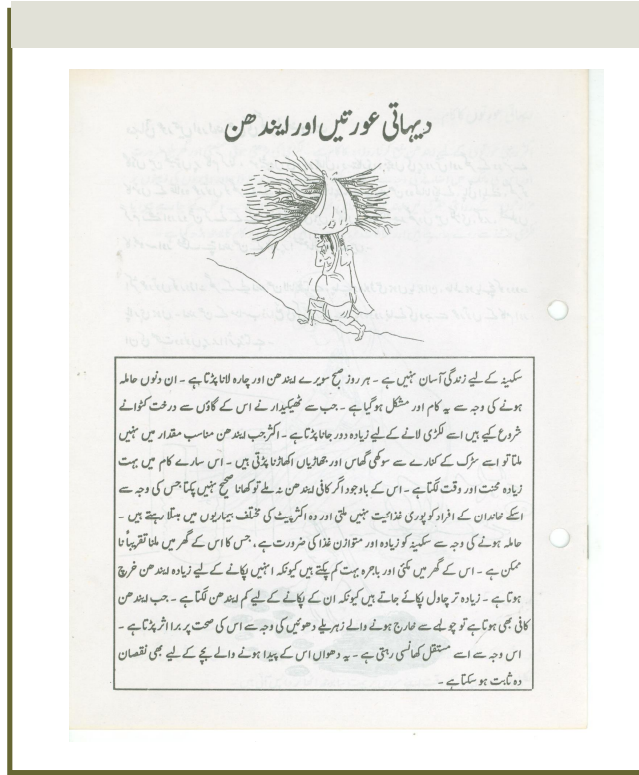 دیہاتی عورتیں اور ایندھن
سکینہ کے لیے زندگی آسان نہیں ہے ۔ ہر روز صبح سویرے ایندھن اور چارہ لانا پڑتا ہے ۔ ان دنوں حاملہ
ہونے کی وجہ سے یہ کام اور مشکل ہوگیا ہے ۔ جب سے ٹھیکیدار نے اس کے گاؤں سے درخت کٹوانے
شروع کیے ہیں اسے لکڑی لانے کے لیے زیادہ دور جانا پڑتا ہے ۔ اکثر جب ایندھن مناسب مقدار میں نہیں
ملتا تو اسے سڑک کے کنارے سے سوکھی گھاس اور جھاڑیاں اکھاڑنا پڑتی ہیں ۔ اس سارے کام میں بہت
زیادہ محنت اور وقت لگتا ہے ۔ اس کے باوجود اگر کافی ایندھن نہ ملے تو کھانا صحیح نہیں پکتا جس کی وجہ سے
اسکے خاندان کے افراد کو پوری غذائیت نہیں ملتی اور وہ اکثر پیٹ کی مختلف بیماریوں میں مبتلا رہتے ہیں ۔
حاملہ ہونے کی وجہ سے سکینہ کو زیادہ اور متوازن غذا کی ضرورت ہے ، جس کا اس کے گھر میں ملنا تقریباً نا
ممکن ہے ۔ اس کے گھر میں مکئی اور باجرہ بہت کم پکتے ہیں کیونکہ انہیں پکانے کے لیے زیادہ ایندھن خرچ
ہوتا ہے ۔ زیادہ تر چاول پکائے جاتے ہیں کیونکہ ان کے پکانے کے لیے کم ایندھن لگتا ہے ۔ جب ایندھن
کافی بھی ہوتا ہے تو چولہے سے خارج ہونے والے زہریلے دھوئیں کی وجہ سے اس کی صحت پر برا اثر پڑتا ہے ۔
اس وجہ سے اسے مستقل کھانسی رہتی ہے ۔ یہ دھواں اس کے پیدا ہونے والے بچے کے لیے بھی نقصان
دہ ثابت ہو سکتا ہے ۔